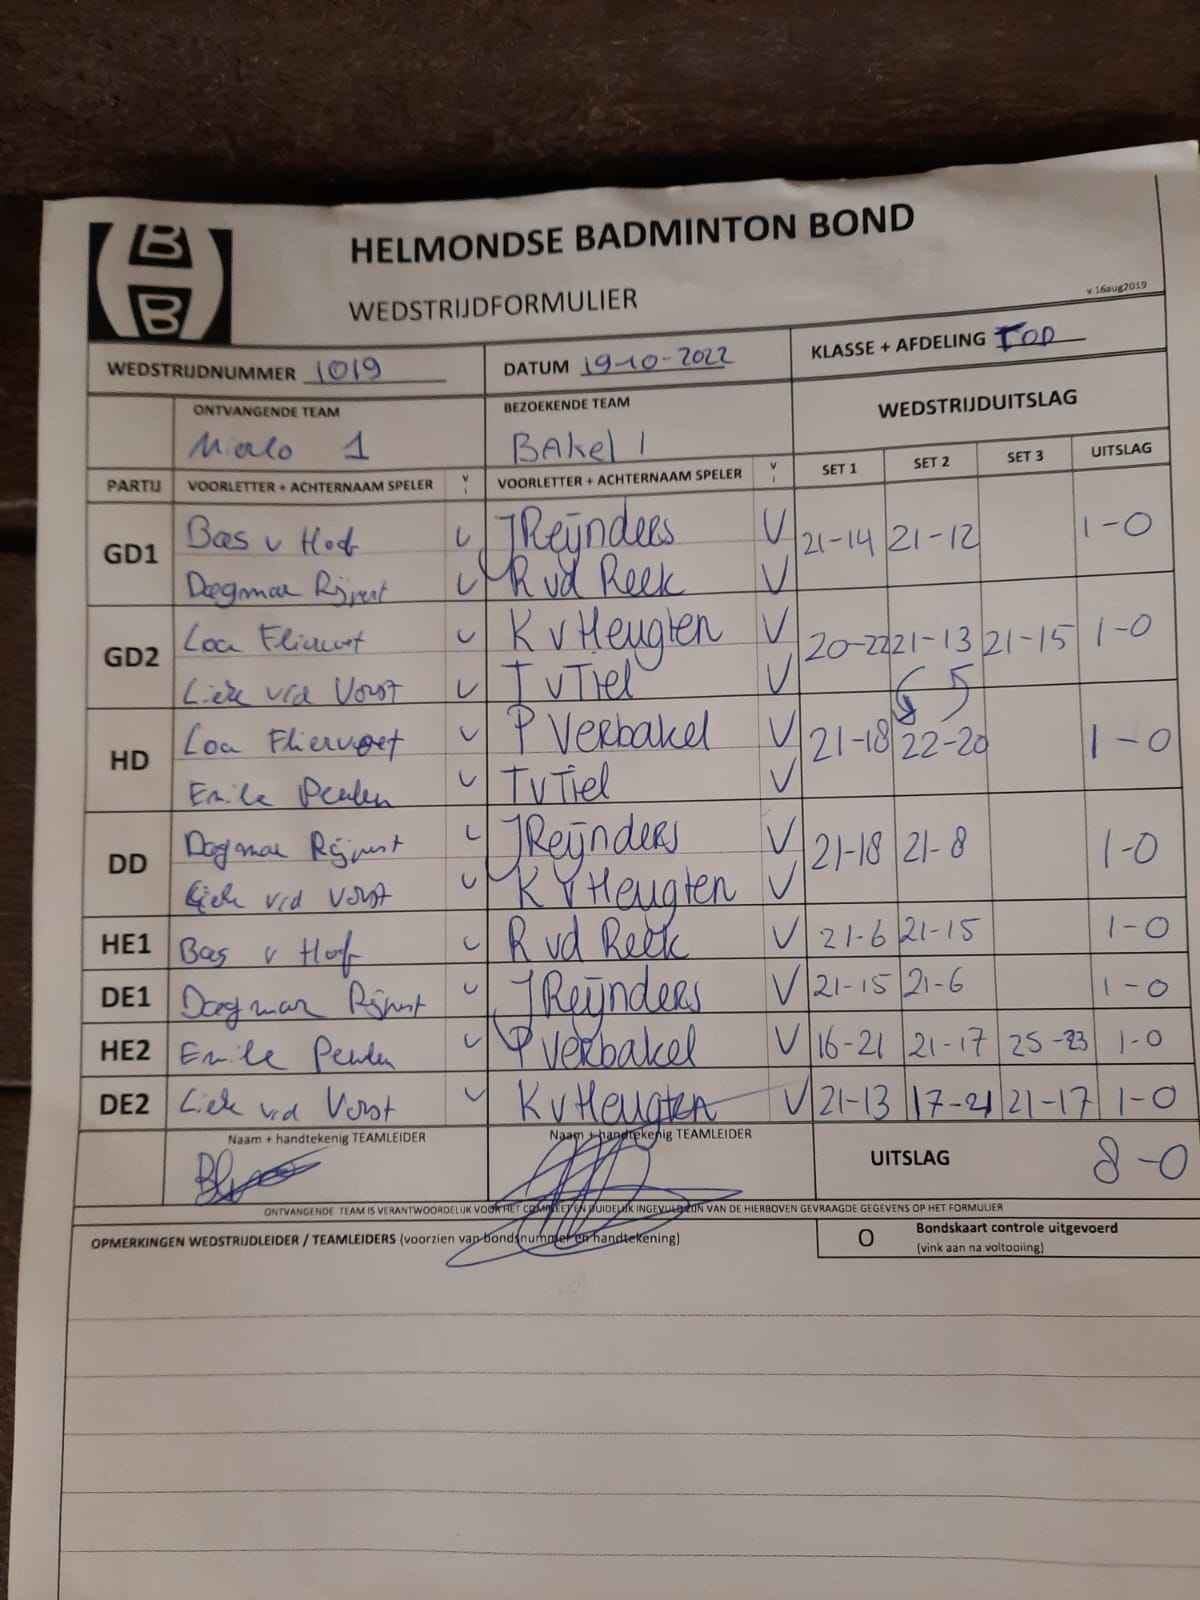 B
B
HELMONDSE BADMINTON BOND
WEDSTRIJDFORMULIER
v 16aug2019
WEDSTRIJDNUMMER 1019 DATUM 19-10-2022 KLASSE + AFDELING TOP
ONTVANGENDE TEAM BEZOEKENDE TEAM WEDSTRIJDUITSLAG
Mierlo 1 BAkel 1
PARTIJ VOORLETTER + ACHTERNAAM SPELER V VOORLETTER + ACHTERNAAM SPELER V SET 1 SET 2 SET 3 UITSLAG
GD1 Bas v Hoof V J Reijnders V 21-14 21-12 1-0
Dagmar Rijpert V R vd Reek V
GD2 Loa Fliervoet V K v Heugten V 20-22 21-13 21-15 1-0
Liek v/d Vorst V T v Tiel V
HD Loa Fliervoet V P Verbakel V 21-18 22-20 1-0
Emile V T v Tiel V
DD Dagmar Rijpert V J Reijnders V 21-18 21-8 1-0
Liek v/d Vorst V K v Heugten V
HE1 Bas v Hoof V R vd Reek V 21-6 21-15 1-0
DE1 Dagmar Rijpert V J Reijnders V 21-15 21-6 1-0
HE2 Emile V P Verbakel V 16-21 21-17 25-23 1-0
DE2 Liek v/d Vorst V K v Heugten V 21-13 17-21 21-17 1-0
Naam + handtekenig TEAMLEIDER Naam + handtekenig TEAMLEIDER UITSLAG 8-0
ONTVANGENDE TEAM IS VERANTWOORDELIJK VOOR HET COMPLEET EN DUIDELIJK INGEVULD ZIJN VAN DE HIERBOVEN GEVRAAGDE GEGEVENS OP HET FORMULIER
OPMERKINGEN WEDSTRIJDLEIDER / TEAMLEIDERS (voorzien van bondsnummer en handtekening) O Bondskaart controle uitgevoerd
(vink aan na voltooiing)